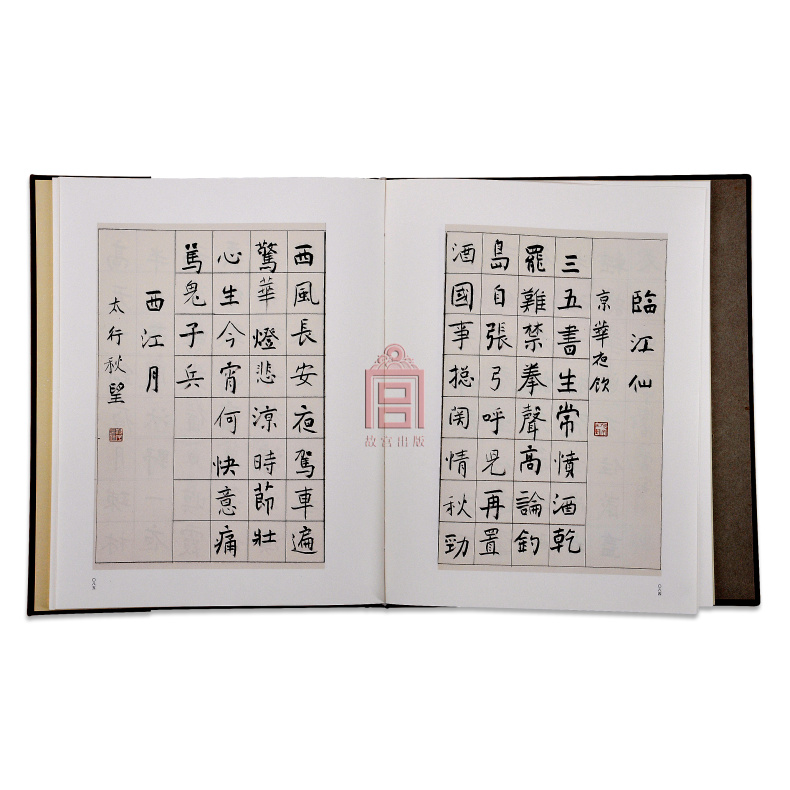 臨江仙
京華夜飲
三五書生常憤酒乾
罷難禁拳聲高論釣
島自張弓呼兒再置
酒國事摠関情秋勁
〇八四
西風長安夜駕車遍
驚華燈悲涼時節壯
心生今宵何快意痛
罵鬼子兵
西江月
太行秋望
〇八五
故宫出版